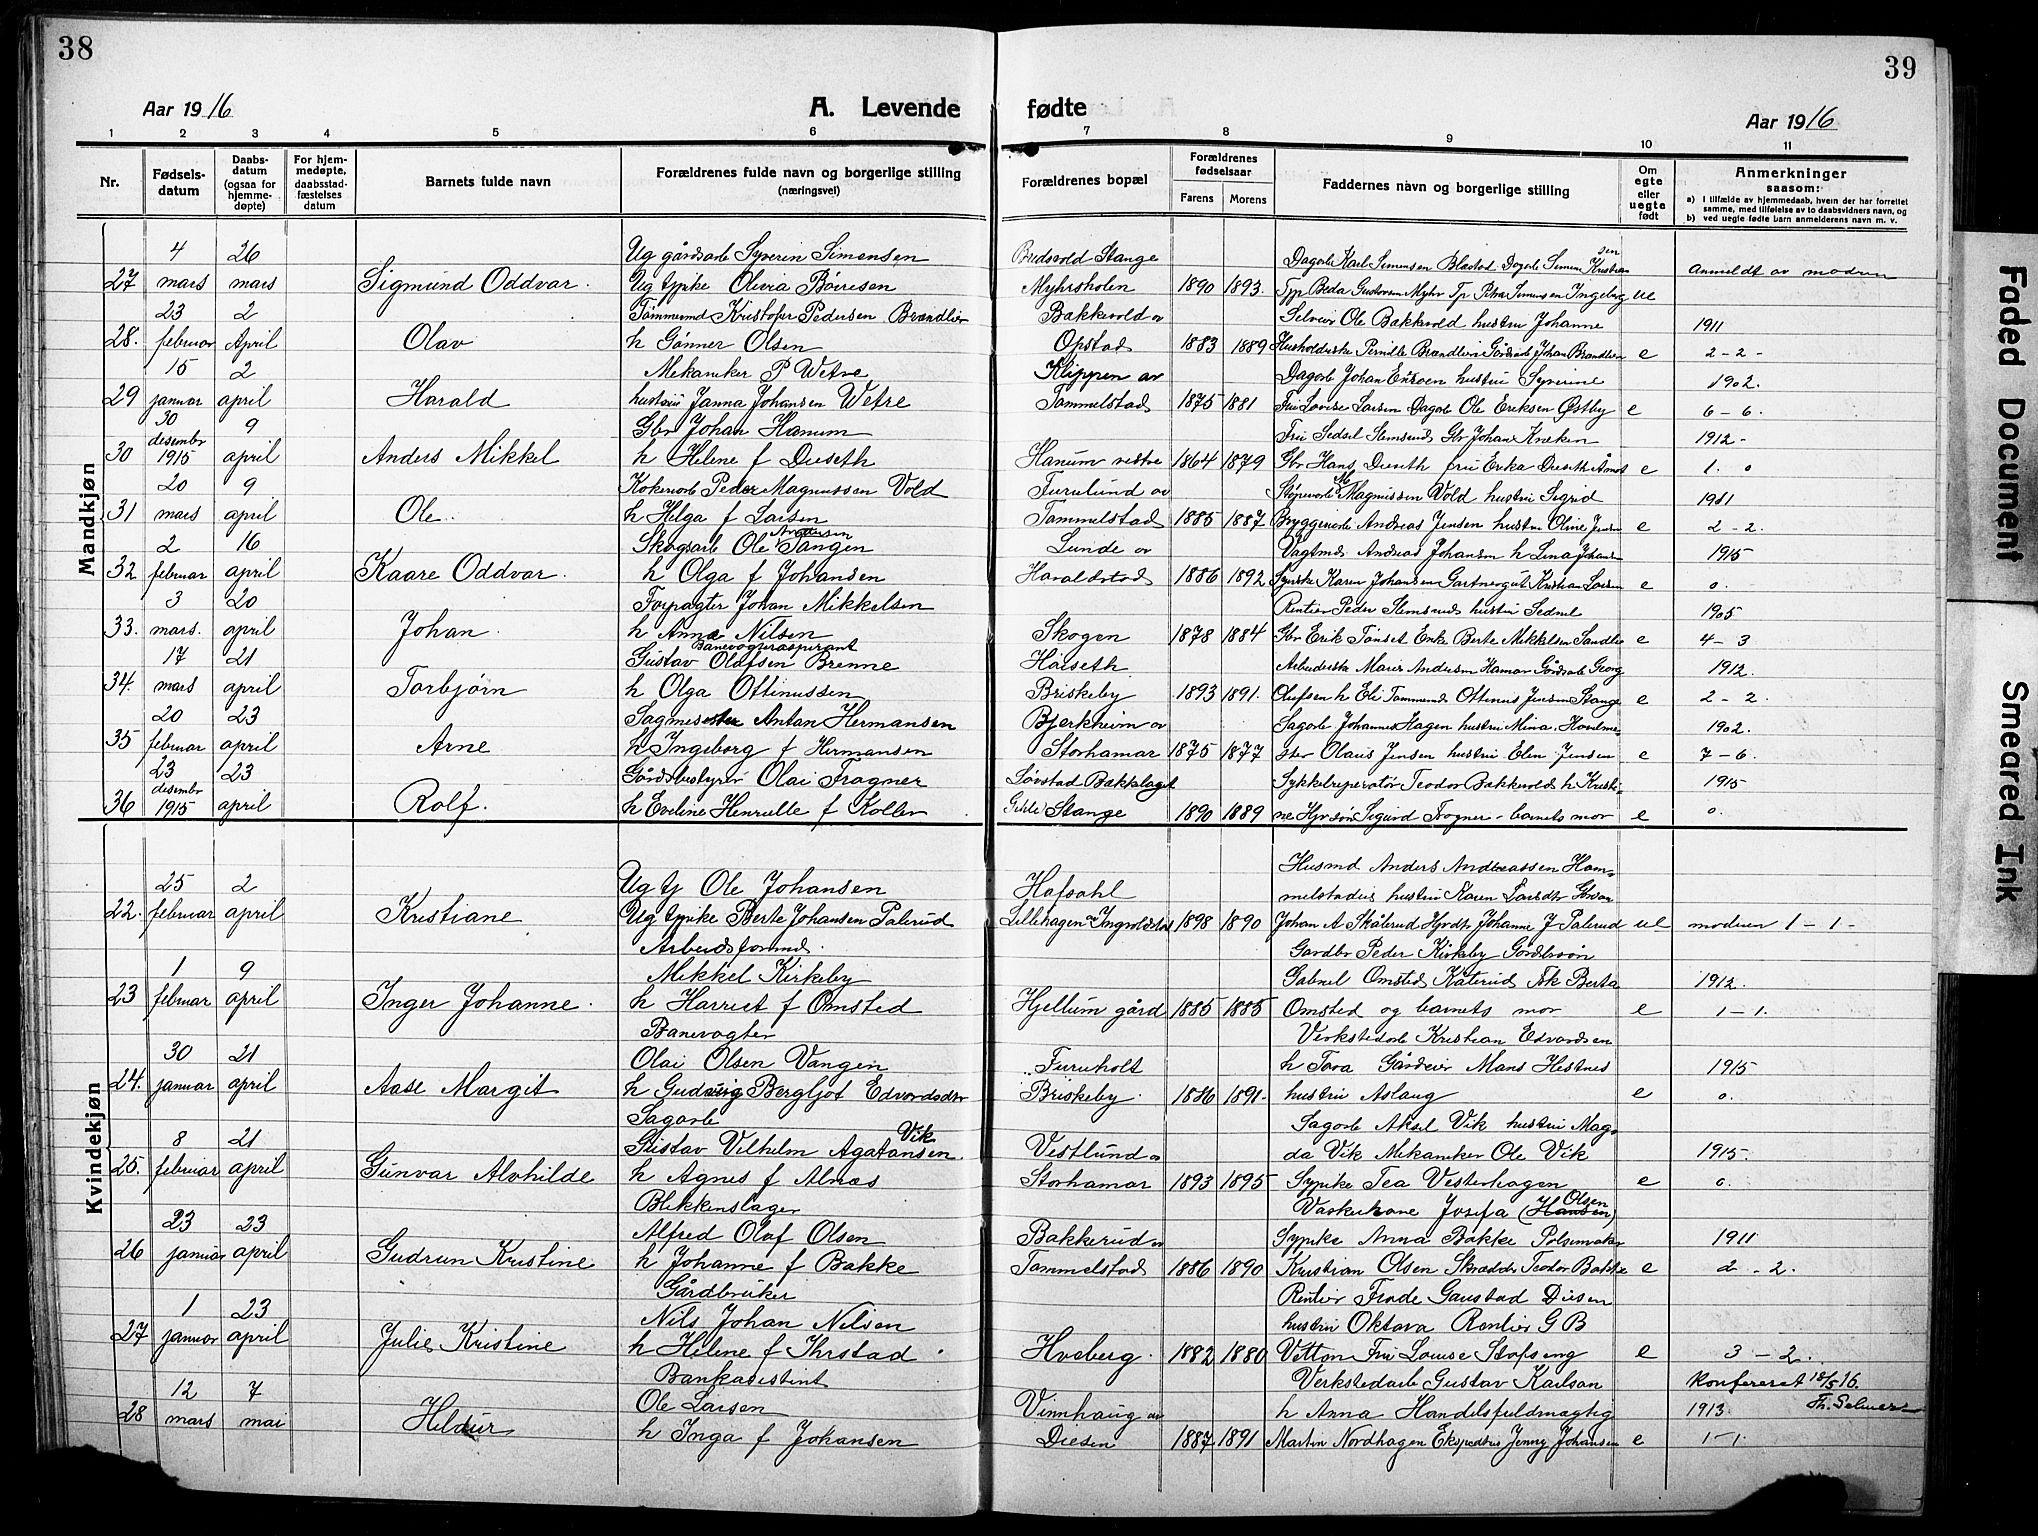 38
39
Aar 1916
A. Levende
fødte
Aar 1916
1 2 3 4 5 6 7 8 9 10 11
Nr.
Fødsels-
datum
Daabs-
datum
(ogsaa for
hjemme-
døpte)
For hjem-
medøpte,
daabsstad-
fæstelses
datum
Barnets fulde navn
Forældrenes fulde navn og borgerlige stilling
(næringsvei)
Forældrenes bopæl
Forældrenes
fødselsaar
Farens Morens
Faddernes navn og borgerlige stilling
Om
egte
eller
uegte
født
Anmerkninger
saasom:
a) I tilfælde av hjemmedaab, hvem der har forrettet
samme, med tilføielse av to daabsvidners navn, og
b) ved uegte fødte barn anmelderens navn m. v.
Mandkjøn
4 26 Ug gårdsarb Syverin Simensen Bredvold Stange
27 mars mars Sigmund Oddvar. Ug tjpike Olivia Børresen Myhrsholen 1890 1893. ue anmeldt av moderen
23 2 Tømmermd Kristofer Pedersen Brændlien Bakkevold av Selveier Ole Bakkevold hustru Johanne 1911
28. februar April Olav h Gønner Olsen Opstad 1883 1889 Husholderske Pernille Brændlien Gårdsarb Johan Brændlien e 2-2-
15 2 Mekaniker P Wetre Klippen av hustru Syverine 1902.
29 januar april Harald hustru Janna Johansen Wetre Tommelstad 1875 1881 Fru Lovise Larsen Dagarb Ole Eriksen Østby e 6-6.
30 9 Gbr Johan Hanum 1912-
30 desembr 1915 april Anders Mikkel h Helene f Dieseth Hanum vestre 1864 1879 Gbr Hans Dieseth fru Erika Dieseth e 1. 0
20 9 Peder Magnussen Vold Furulund av Magnussen Vold hustru Sigrid 1911
31 mars april Ole. h Helga f Larsen Tommelstad 1885 1887 Bryggeriarb Andreas Jensen hustru Oline Jensen e 2-2.
2 16 Skogsarb Ole Andersen Tangen Lunde av Vagtmd Andreas Johansen h Lina Johansen 1915
32 februar april Kaare Oddvar. h Olga f Johansen Haraldstad 1886 1892 Karen Johansen Gartnergut Kristian Larsen e 0.
3 20 Forpagter Johan Mikkelsen Rentier Peder Stemsrud hustru 1905
33. mars. april Johan. h Anna Nilsen Skogen 1878 1884 Gbr Erik Tønset Enke Berte Mikkelsen Sandlien e 4-3
17 21 Banevogteraspirant Gustav Olafsen Brenne Høiseth Arbeiderske Marie Andersen Hamar Gårdsarb Georg 1912.
34. mars april Torbjørn h Olga Ottinussen Briskeby 1893 1891. Olufsen h Eli Tømmermd Ottinus Jensen Stange e 2-2
20 23 Sagmester Antan Hermansen Bjerkheim av Sagarb Johannes Hagen hustru Mina, 1902.
35 februar april Arne h Ingeborg f Hermansen Storhamar 1875 1877 Olaus Jensen hustru Elen Jensen e 7-6.
23 23 Gårdsbestyrer Olai Frogner Løvstad Bakkelaget Sykkelreperatør Teodor Bakkevold h Kristi- 1915
36 desembr 1915 april Rolf. h Eveline Henriette f Koller Stange 1890 1889 ne Hjv søn Sigurd Frogner - barnets mor e 0.
Kvindekjøn
25 2 Ug tj Ole Johansen Hofsahl Husmd Anders Andreassen Ham-
22. februar april Kristiane Ug tjpike Berte Johansen Palerud Lillehagen Ingvoldstad 1898 1890 Johan A Skålerud Hjvdtr Johanne J Palerud ue moderen 1-1-
Arbeidsformd. Gardbr Peder Kirkeby
1 9 Mikkel Kirkeby Gabriel Omsted Katerud Frk Berta 1912.
23 februar april Inger Johanne. h Harriet f Omsted Hjellum gård 1885 1885 Omsted og barnets mor e 1-1.
Banevogter Verkstedarb Kristian Edvardsen
30 21 Olai Olsen Vangen Furuholt h Tora Gårdeier Mans Hestnes 1915
24. januar april Aase Margit h Gudvig Bergljot Edvardsdtr Briskeby. 1886 1891- hustru Aslaug e 0.
Sagarb Sagarb Aksel Vik hustru Mag-
8 21 Gustav Vilhelm Agatansen. Vik Vestlund av da Vik Mekaniker Ole Vik 1915.
25. februar april Gunvar Alvhilde h Agnes f Alnæs Storhamar 1893 1895 Sypike Tea Vesterhagen e 0.
Blikkenslager Vaskerkone Josefa (Hansen) Olsen
23 23 Alfred Olaf Olsen Bakkerud av Sypike Anna Bakke Pølsemaker 1911
26 januar april Gudrun Kristine h Johanne f Bakke Tommelstad 1886 1890 Kristian Olsen Skrædder Teodor Bakke e 2-2.
Gårdbruker Rentier Frode Gaustad Diesen
1 23 Nils Johan Nilsen hustru Oktava Rentier G B
27 januar april Julie Kristine h Helene f Ihrstad Hveberg. 1882 1880 Vetton Fru Louise Stafseng e 3-2.
Bankasistent Verkstedarb Gustav Karlsen Konfereret 18/5 16.
12 7 Ole Larsen Vinnhaug av h Anna Handelsfuldmægtig 1913. Th. Selmer
28 mars mai Hildur h Inga f Johansen Diesen 1887 1891 Martin Nordhagen Ekspedtris Jenny Johansen e 1-1.
Faded Document
Smeared Ink